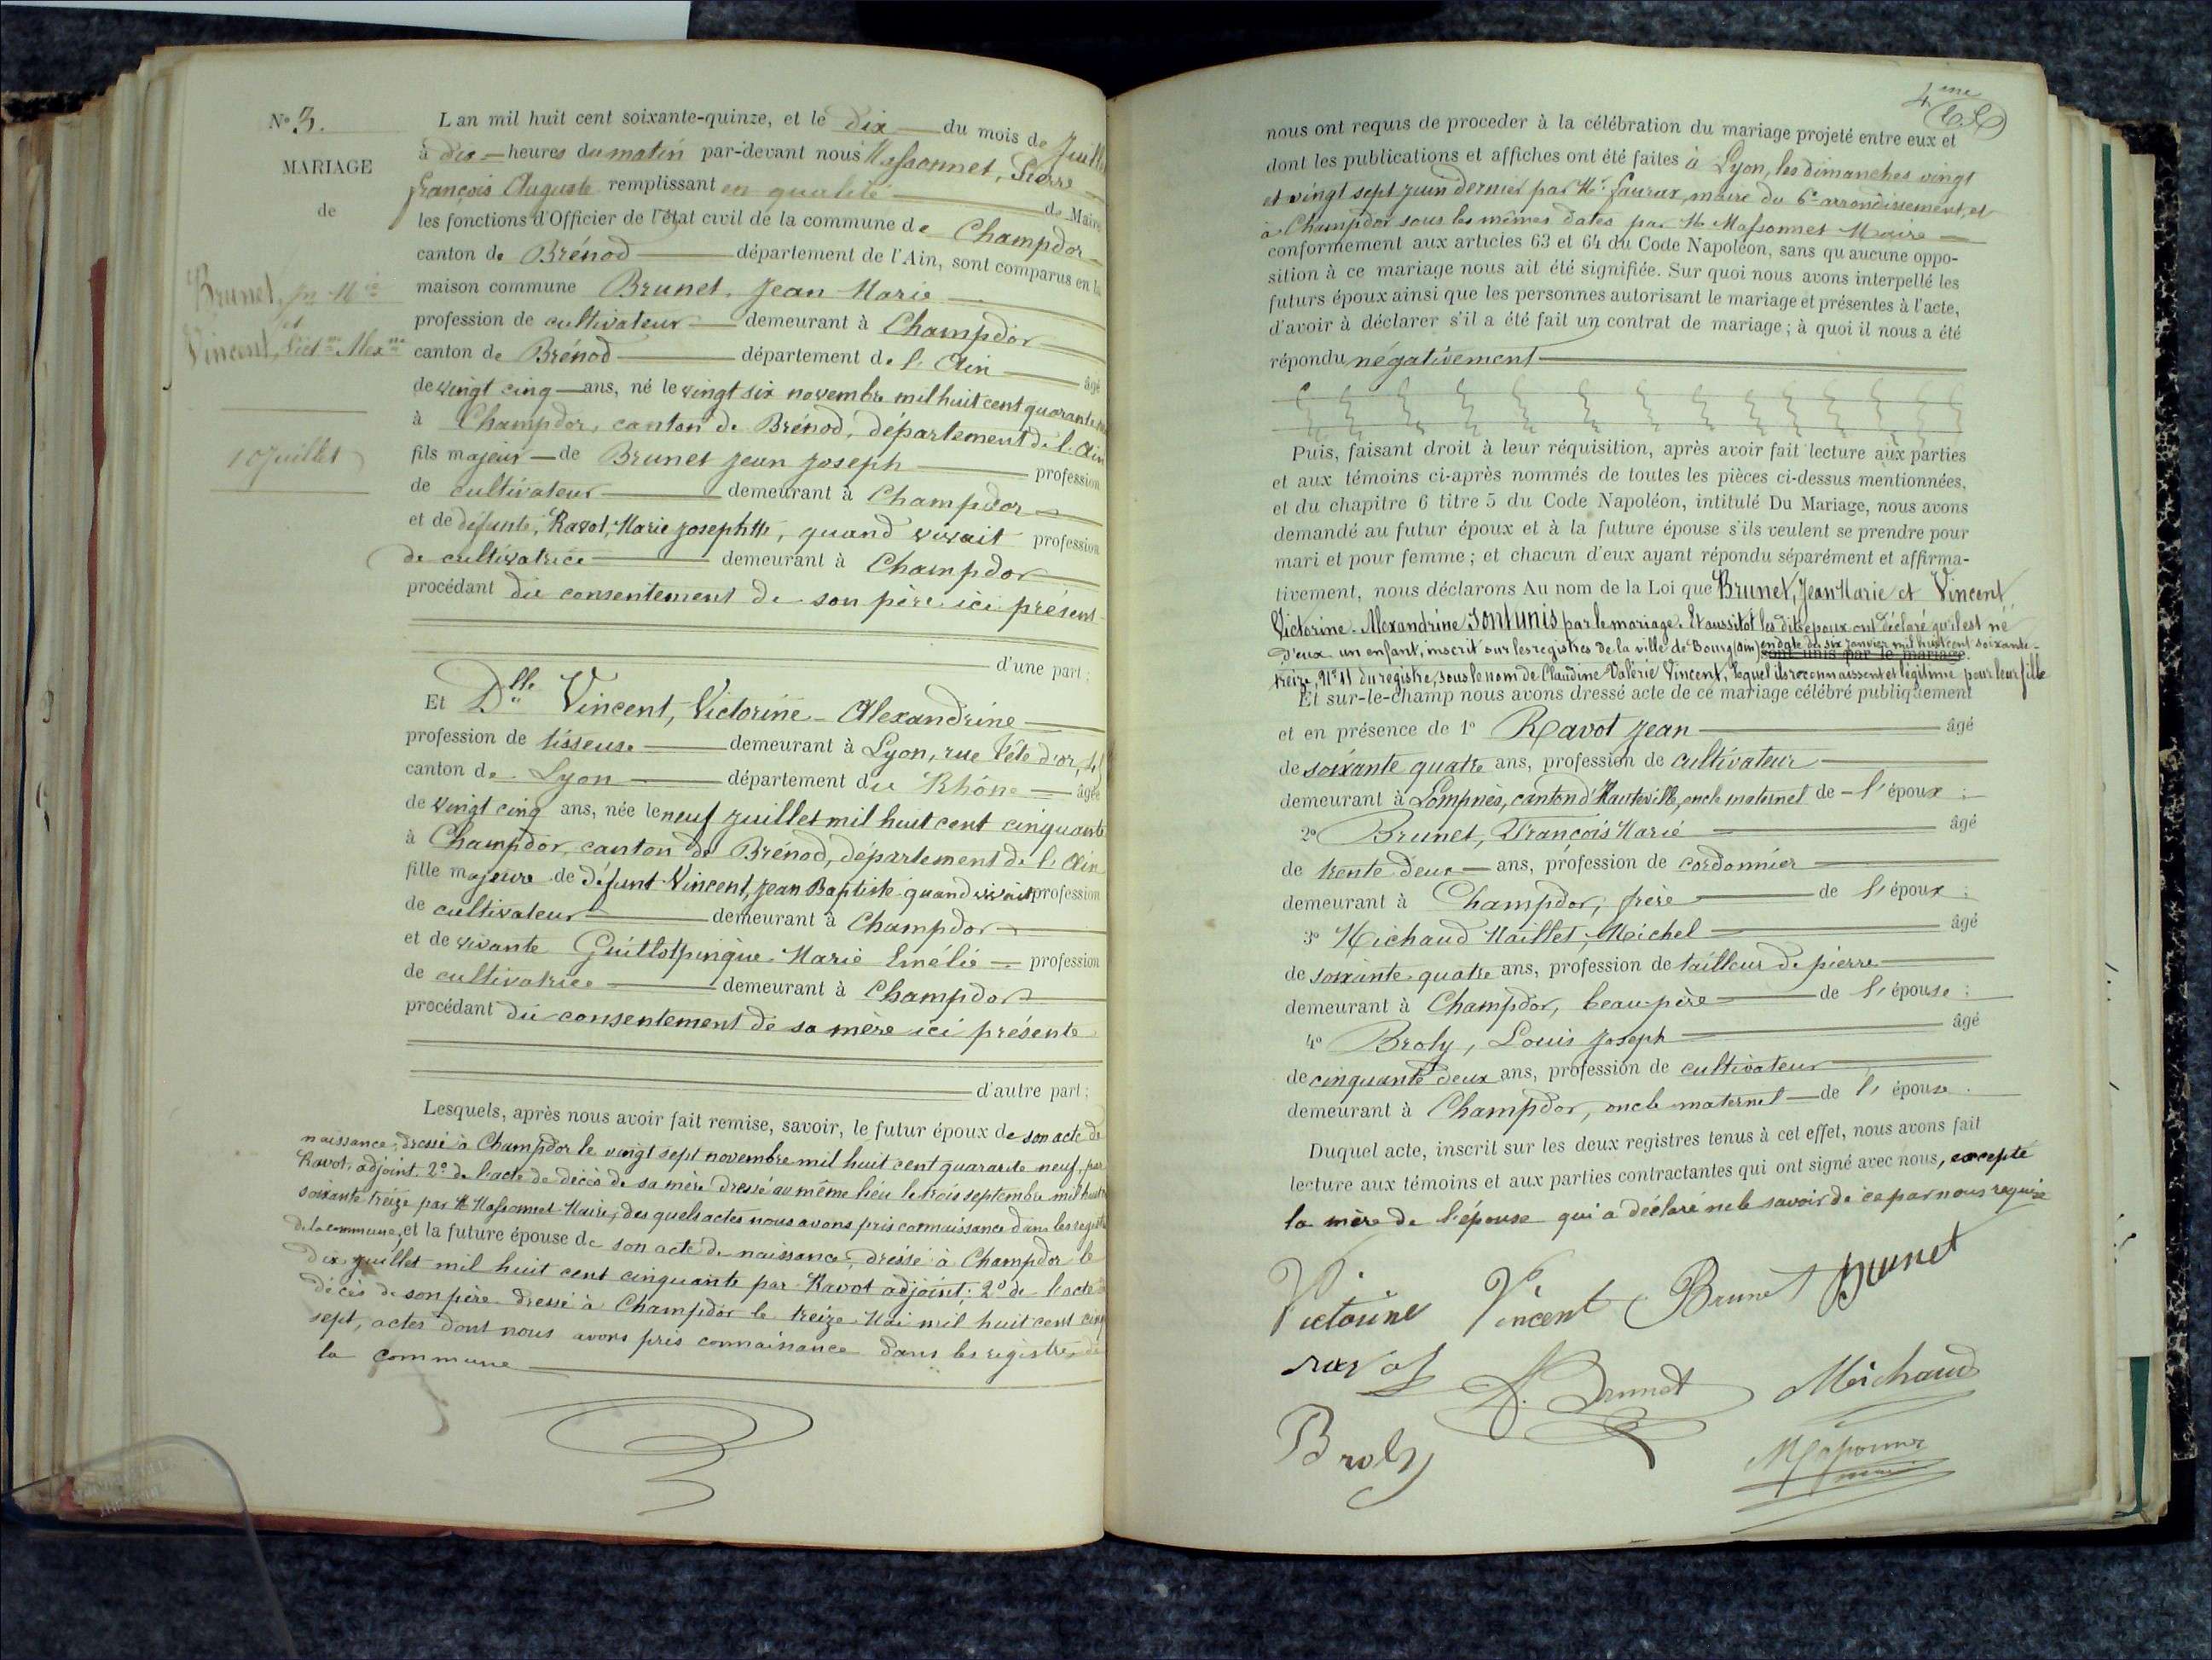 N° 3.
MARIAGE
de
Brunet, Jn Mie
et
Vincent, Victne Alexne
10 Juillet
L'an mil huit cent soixante-quinze, et le dix du mois de Juillet
à dix heures du matin par-devant nous Massonnet, Pierre
françois Auguste remplissant en qualité de Maire
les fonctions d'Officier de l'état civil de la commune de Champdor
canton de Brénod département de l'Ain, sont comparus en la
maison commune Brunet, Jean Marie
profession de cultivateur demeurant à Champdor
canton de Brénod département de l'Ain âgé
de vingt cinq ans, né le vingt six novembre mil huit cent quarante
à Champdor, canton de Brénod, département de l'Ain
fils majeur de Brunet Jean Joseph profession
de cultivateur demeurant à Champdor
et de défunte, Ravot, Marie Josephtte, quand vivait profession
de cultivatrice demeurant à Champdor
procédant du consentement de son père ici présent
d'une part ;
Et Dlle Vincent, Victorine-Alexandrine
profession de tisseuse demeurant à Lyon, rue Tête d'or,
canton de Lyon département du Rhône âgée
de vingt cinq ans, née le neuf juillet mil huit cent cinquante
à Champdor, canton de Brénod, département de l'Ain
fille majeure de défunt Vincent, Jean Baptiste quand vivait profession
de cultivateur demeurant à Champdor
et de vivante Guillotpingue Marie Emélie profession
de cultivatrice demeurant à Champdor
procédant du consentement de sa mère ici présente
d'autre part ;
Lesquels, après nous avoir fait remise, savoir, le futur époux de son acte de
naissance, dressé à Champdor le vingt sept novembre mil huit cent quarante neuf, par
Ravot, adjoint. 2° de l'acte de décès de sa mère dressé au même lieu le trois septembre mil huit
soixante treize par M Massonnet Maire, des quels actes nous avons pris connaissance dans les registres
de la commune, et la future épouse de son acte de naissance, dressé à Champdor le
dix juillet mil huit cent cinquante par Ravot adjoint : 2° de l'acte
décès de son père dressé à Champdor le treize Mai mil huit cent cinq
sept, actes dont nous avons pris connaissance dans les registres de
la commune
4me
nous ont requis de procéder à la célébration du mariage projeté entre eux et
dont les publications et affiches ont été faites à Lyon, les dimanches vingt
et vingt sept juin dernier par Mr. faurax, maire du 6e arrondissement, et
à Champdor sous les mêmes dates par M Massonnet Maire
conformément aux articles 63 et 64 du Code Napoléon, sans qu'aucune oppo-
sition à ce mariage nous ait été signifiée. Sur quoi nous avons interpellé les
futurs époux ainsi que les personnes autorisant le mariage et présentes à l'acte,
d'avoir à déclarer s'il a été fait un contrat de mariage ; à quoi il nous a été
répondu négativement
Puis, faisant droit à leur réquisition, après avoir fait lecture aux parties
et aux témoins ci-après nommés de toutes les pièces ci-dessus mentionnées,
et du chapitre 6 titre 5 du Code Napoléon, intitulé Du Mariage, nous avons
demandé au futur époux et à la future épouse s'ils veulent se prendre pour
mari et pour femme ; et chacun d'eux ayant répondu séparément et affirma-
tivement, nous déclarons Au nom de la Loi que Brunet, Jean Marie et Vincent
Victorine-Alexandrine sont unis par le mariage. Et aussitôt les dits époux ont déclaré qu'il est né
d'eux un enfant, inscrit sur les registres de la ville de Bourg (Ain) en date du six janvier mil huit cent soixante-
sont unis par le mariage.
treize, N° 11 du registre, sous le nom de Claudine Valérie Vincent, lequel ils reconnaissent et légitime pour leur fille
Et sur-le-champ nous avons dressé acte de ce mariage célébré publiquement
et en présence de 1° Ravot Jean âgé
de soixante quatre ans, profession de cultivateur
demeurant à Lompnès, canton d'Hauteville, oncle maternel de l'époux ;
2° Brunet, François Marie âgé
de trente deux ans, profession de cordonnier
demeurant à Champdor, frère de l'époux ;
3° Michaud Maillet, Michel âgé
de soixante quatre ans, profession de tailleur de pierre
demeurant à Champdor, beau-père de l'épouse ;
4° Broly, Louis Joseph âgé
de cinquante deux ans, profession de cultivateur
demeurant à Champdor, oncle maternel de l'épouse.
Duquel acte, inscrit sur les deux registres tenus à cet effet, nous avons fait
lecture aux témoins et aux parties contractantes qui ont signé avec nous, excepté
la mère de l'épouse qui a déclaré ne le savoir de ce par nous requise
Victorine Vincent Brunet Brunet
ravot Brunet Michaud
Broly Massonnet